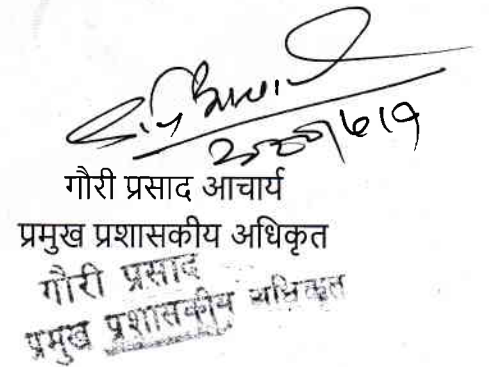 गौरी प्रसाद आचार्य
प्रमुख प्रशासकीय अधिकृत
गौरी प्रसाद
प्रमुख प्रशासकीय अधिकृत